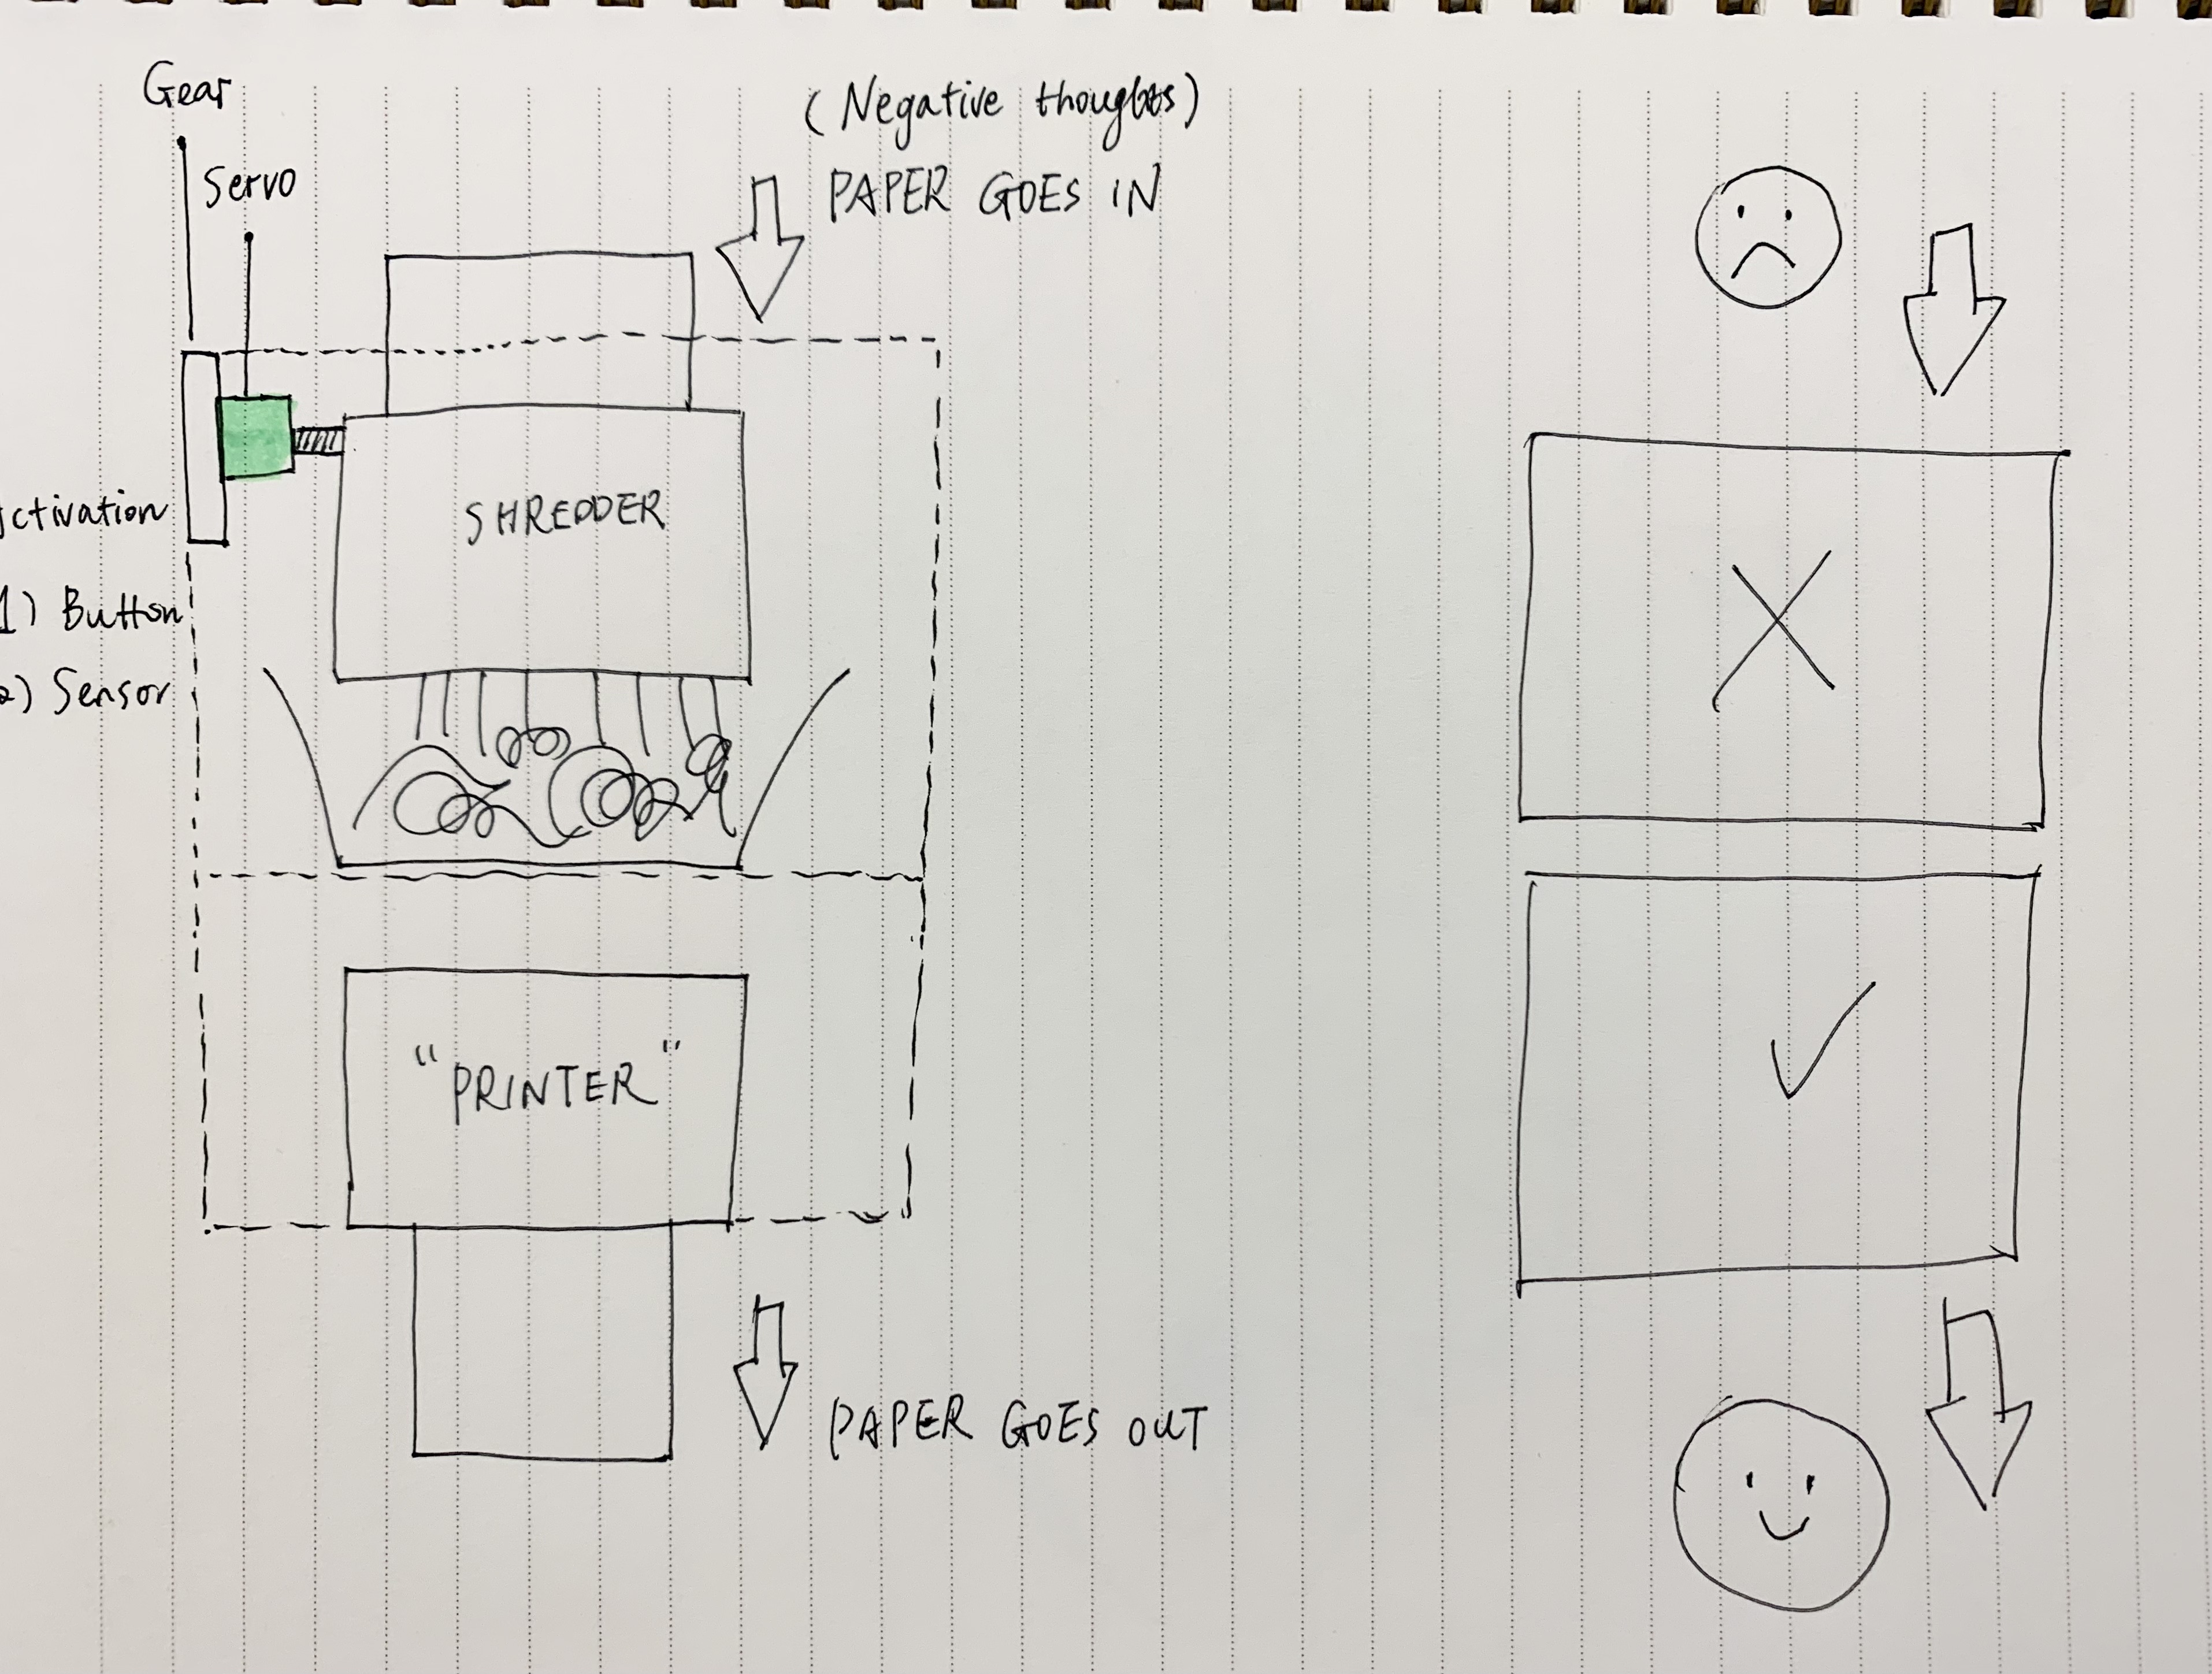 Gear
Servo
(Negative thoughts)
PAPER GOES IN
SHREDDER
activation
1) Button
2) Sensor
"PRINTER"
PAPER GOES OUT